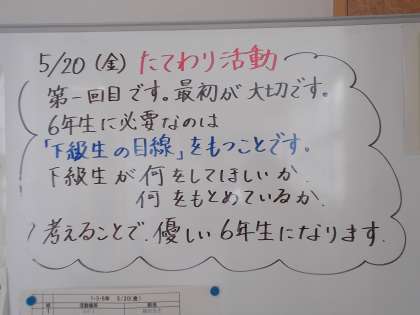 5/20(金) たてわり活動
第一回目です。最初が大切です。
6年生に必要なのは
「下級生の目線」をもつことです。
下級生が何をしてほしいか.
何をもとめているか.
考えることで.優しい6年生になります.
1・3・5年 5/20(金)